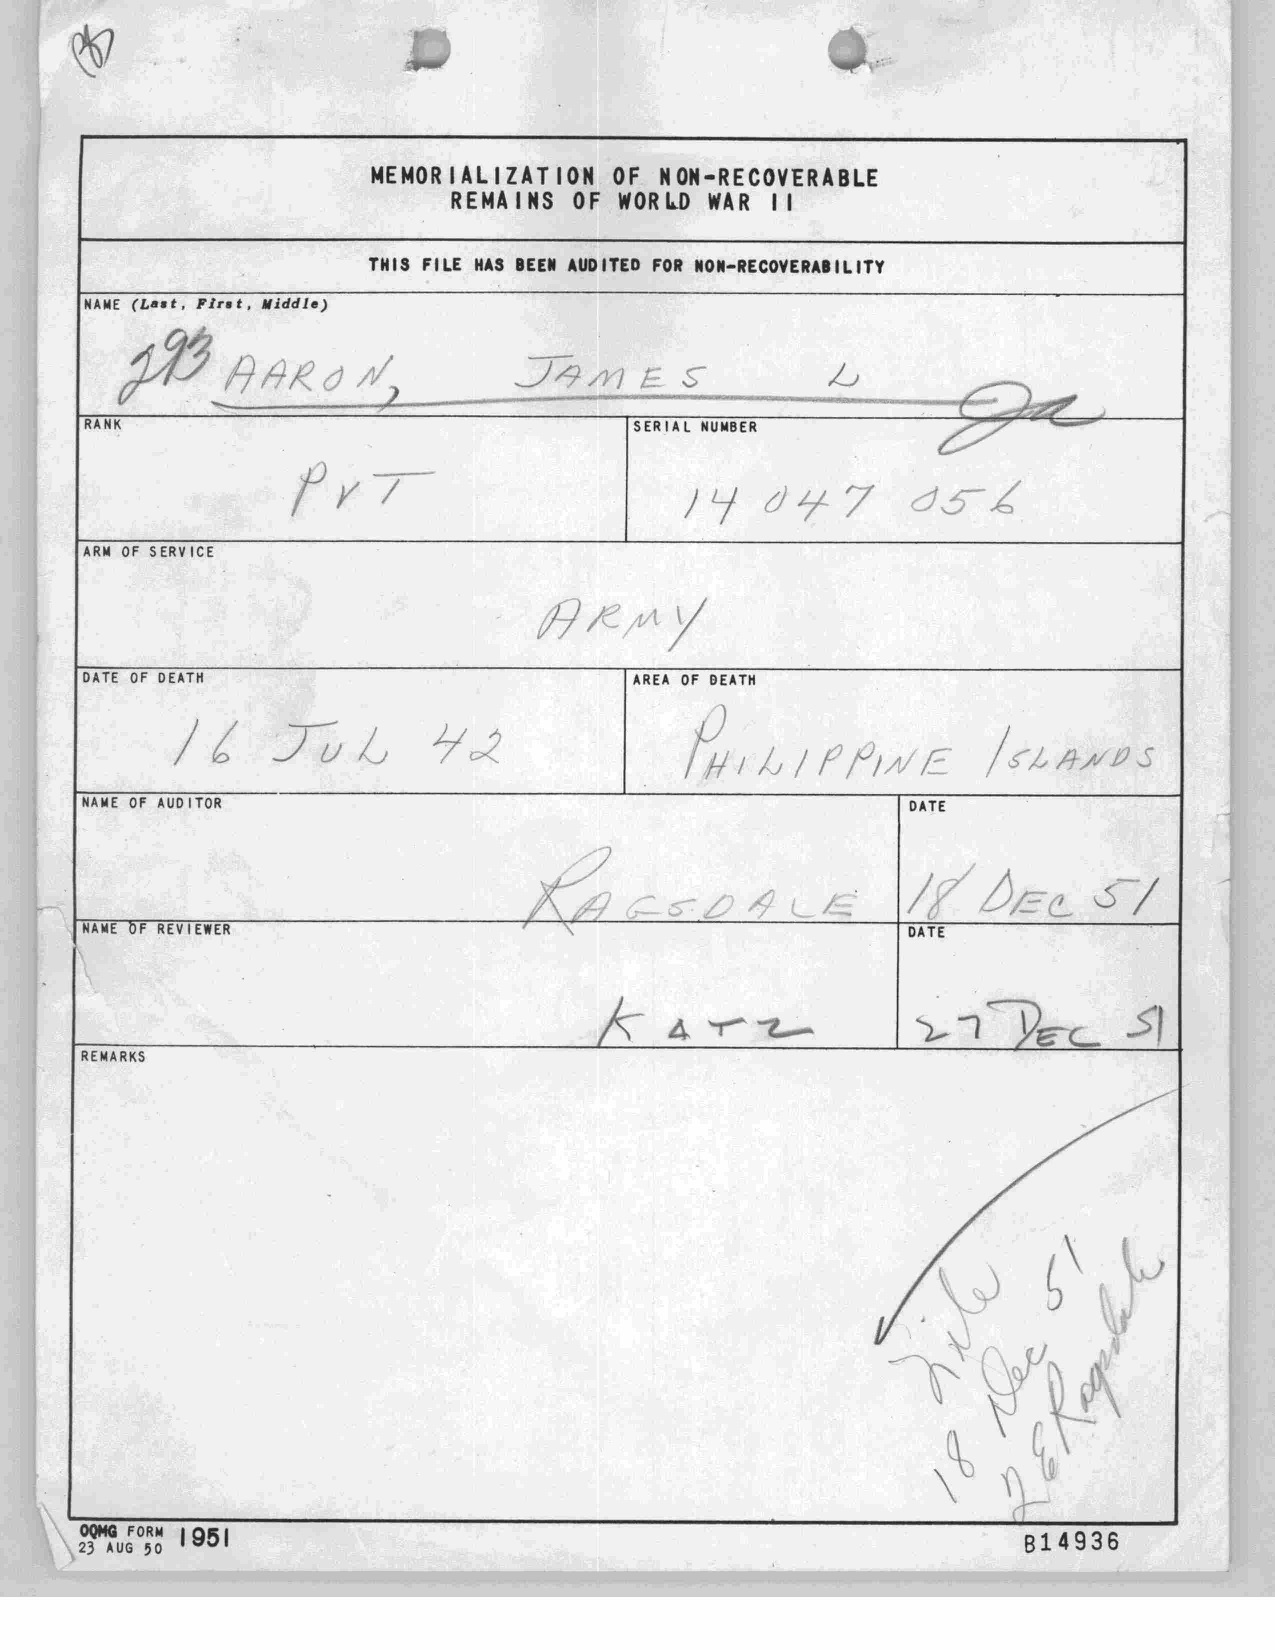 MEMORIALIZATION OF NON-RECOVERABLE
REMAINS OF WORLD WAR II
THIS FILE HAS BEEN AUDITED FOR NON-RECOVERABILITY
NAME (Last, First, Middle)
293 AARON, JAMES L
RANK
PVT
SERIAL NUMBER
14 047 056
ARM OF SERVICE
ARMY
DATE OF DEATH
16 JUL 42
AREA OF DEATH
PHILIPPINE ISLANDS
NAME OF AUDITOR
RAGSDALE
DATE
18 DEC 51
NAME OF REVIEWER
KATZ
DATE
27 DEC 51
REMARKS
File
18 Dec 51
Ragsdale
OQMG FORM 1951
23 AUG 50
B14936